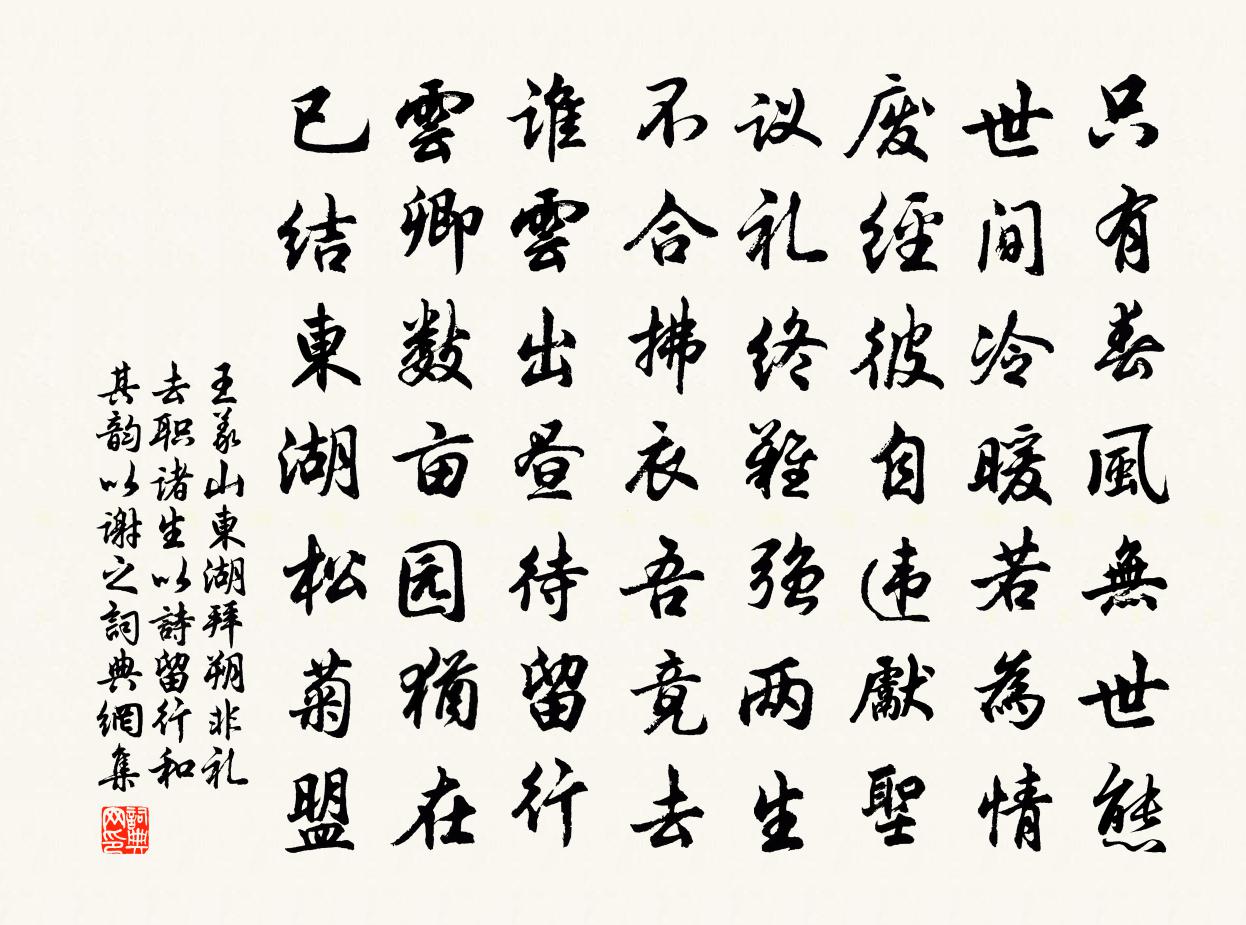 只有春風無世態
世间冷暖若為情
废經彼自违獻聖
议礼终難强两生
不合拂衣吾竟去
谁雲出昼待留行
雲卿数亩园猶在
已结東湖松菊盟
王義山東湖拜朔非礼
去职诸生以詩留行和
其韵以谢之詞典網集
詞典
网印